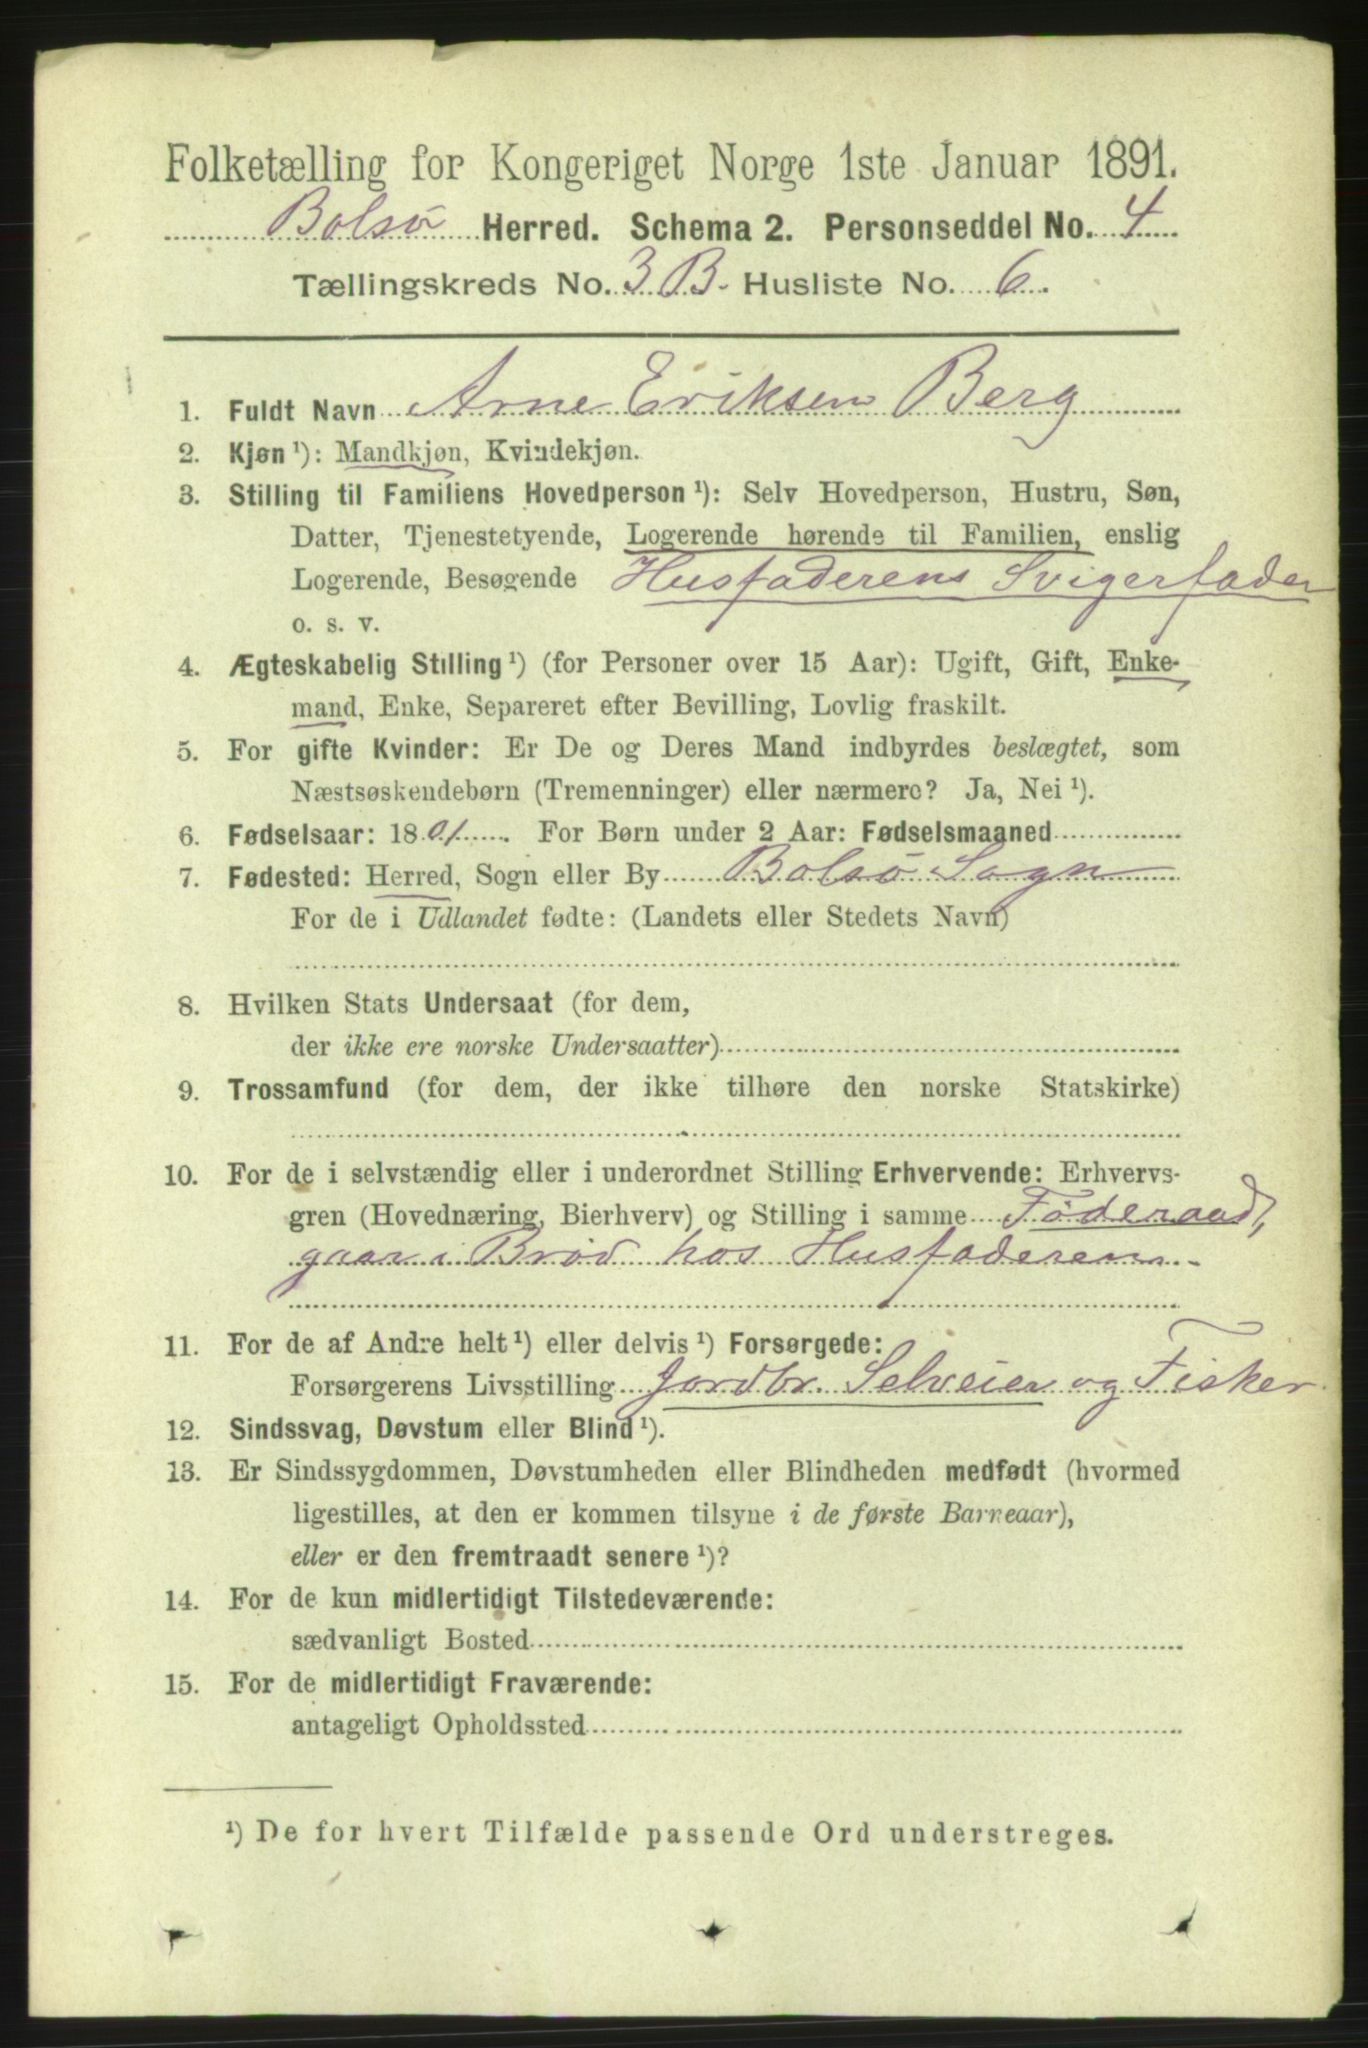 Folketælling for Kongeriget Norge 1ste Januar 1891.
Bolsø Herred. Schema 2. Personseddel No. 4
Tællingskreds No. 3 B. Husliste No. 6.
1. Fuldt Navn Arne Eriksen Berg
2. Kjøn ¹): Mandkjøn, Kvindekjøn.
3. Stilling til Familiens Hovedperson ¹): Selv Hovedperson, Hustru, Søn,
Datter, Tjenestetyende, Logerende hørende til Familien, enslig
Logerende, Besøgende Husfaderens Svigerfader
o. s. v.
4. Ægteskabelig Stilling ¹) (for Personer over 15 Aar): Ugift, Gift, Enke-
mand, Enke, Separeret efter Bevilling, Lovlig fraskilt.
5. For gifte Kvinder: Er De og Deres Mand indbyrdes beslægtet, som
Næstsøskendebørn (Tremenninger) eller nærmere? Ja, Nei ¹).
6. Fødselsaar: 1801. For Børn under 2 Aar: Fødselsmaaned
7. Fødested: Herred, Sogn eller By Bolsø Sogn
For de i Udlandet fødte: (Landets eller Stedets Navn)
8. Hvilken Stats Undersaat (for dem,
der ikke ere norske Undersaatter)
9. Trossamfund (for dem, der ikke tilhøre den norske Statskirke)
10. For de i selvstændig eller i underordnet Stilling Erhvervende: Erhvervs-
gren (Hovednæring, Bierhverv) og Stilling i samme Føderaad,
gaar i Brød hos Husfaderen.
11. For de af Andre helt ¹) eller delvis ¹) Forsørgede:
Forsørgerens Livsstilling Jordbr. Selveier og Fisker.
12. Sindssvag, Døvstum eller Blind ¹).
13. Er Sindssygdommen, Døvstumheden eller Blindheden medfødt (hvormed
ligestilles, at den er kommen tilsyne i de første Barneaar),
eller er den fremtraadt senere ¹)?
14. For de kun midlertidigt Tilstedeværende:
sædvanligt Bosted
15. For de midlertidigt Fraværende:
antageligt Opholdssted
¹) De for hvert Tilfælde passende Ord understreges.